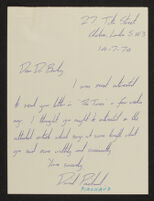 27. Tite Street
Chelsea, London S.W.3
14.7.70
Dear Dr
I was most interested
to read your letter in The Times a few weeks
ago. I thought you might be interested in the
attached article which says at some length what
you said more wittily and succinctly.
Yours sincerely,
David